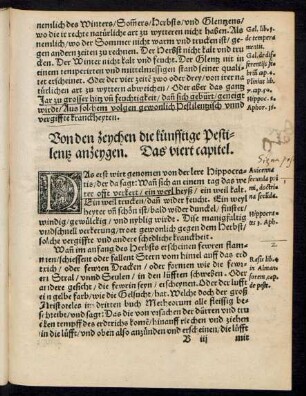 nemlich des Winters/ Som̃ers/ Herbsts/ vnd Glentzens/
wo die jr rechte natürliche art zu wyttern nicht haben. Als
nemlich/ wo der Sommer nicht warm vnd trucken ist/ ge-
gen andern zeiten zu rechnen. Der Herbst nicht kalt vnd tru-
cken. Der Winter nicht kalt vnd feucht. Der Glentz nit in
einem temperirten vnd mittelmessigen stand seiner qualite-
ten erscheint. Oder der vier zeitẽ zwo oder drey/ von jrer na
türlichen art zu wyttern abweichen/ Oder aber das gantz
Jar zu grosser hitz vñ feuchtigkeit/ dañ sich gebürt/ geneigt
wirdt/ Aus solchem volgen gewonlich Pestilentzisch vnnd
vergiffte kranckheyten.
Gal. lib.
tempera
mentis.
Hippoc.
Aphor.
Von den zeychen die künfftige Pesti-
lentz anzeygen. Das viert capitel.
DAs erst wirt genomen von der lere Hippocra
tis/ der da sagt: Wañ sich an einem tag das we
ter offt verkert/ ein weyl heyß/ ein weil kalt.
Ein weil trucken/ dañ wider feucht. Ein weyl
heyter vñ schön ist/ bald wider dunckel/ finster/
windig/ gewülckig/ vnd nyblig wirdt. Dise manigfaltig
vnd schnell verkerung/ tregt gewonlich gegen dem Herbst/
solche vergiffte vnd andere schedliche kranckheit.
Auicenna
Hippocra
Wañ im anfang des Herbsts erscheinen fewren flam-
men/ schiessent oder fallent Stern von himel auff das erd
trich/ oder fewren Dracken/ oder formen wie die fewri-
gen Stral/ vnnd Seulen/ in den lüfften schweben. Oder
andere gesicht/ die fewrin seyn/ erscheynen. Oder der lufft
ein gelbe farb/ wie die Gelsucht/ hat. Welche doch der groß
Aristoteles im dritten buch Metheororum alle fleissig be-
schreibt/ vnd sagt: Das die von vrsachen der dürren vnd tru
cken tempff des erdtrichs komẽ/ hinauff riechen vnd ziehen
in die lüfft/ vnd oben also anzünden vnd erscheinen/ die lüfft
Rasis lib.
in Alman
de peste.
B iij
mit